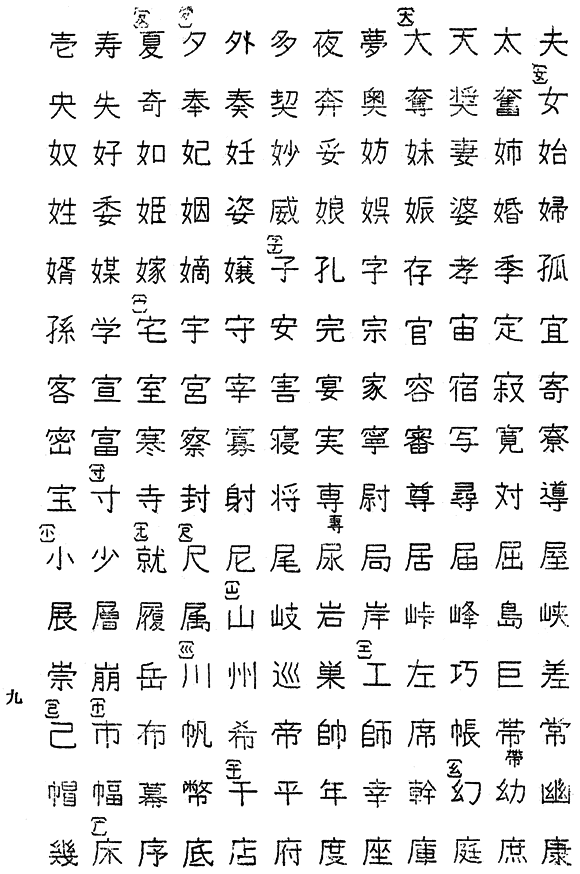 壱寿夏夕外多夜夢大天太夫
央失奇奉奏契奔奥奪奨奮女
奴好如妃妊妙妥妨妹妻姉始
姓委姫姻姿威娘娯娠婆婚婦
婿媒嫁嫡嬢子孔字存孝季孤
孫学宅宇守安完宗官宙定宜
客宣室宮宰害宴家容宿寂寄
密富寒察寡寝実寧審写寛寮
宝寸寺封射将専尉尊尋対導
専
小少就尺尼尾尿局居届屈屋
展層履属山岐岩岸峠峰島峡
崇崩岳川州巡巣工左巧巨差
九
己市布帆希帝帥師席帳帯常
帶
帽幅幕幣干平年幸幹幻幼幽
幾床序底店府度座庫庭庶康